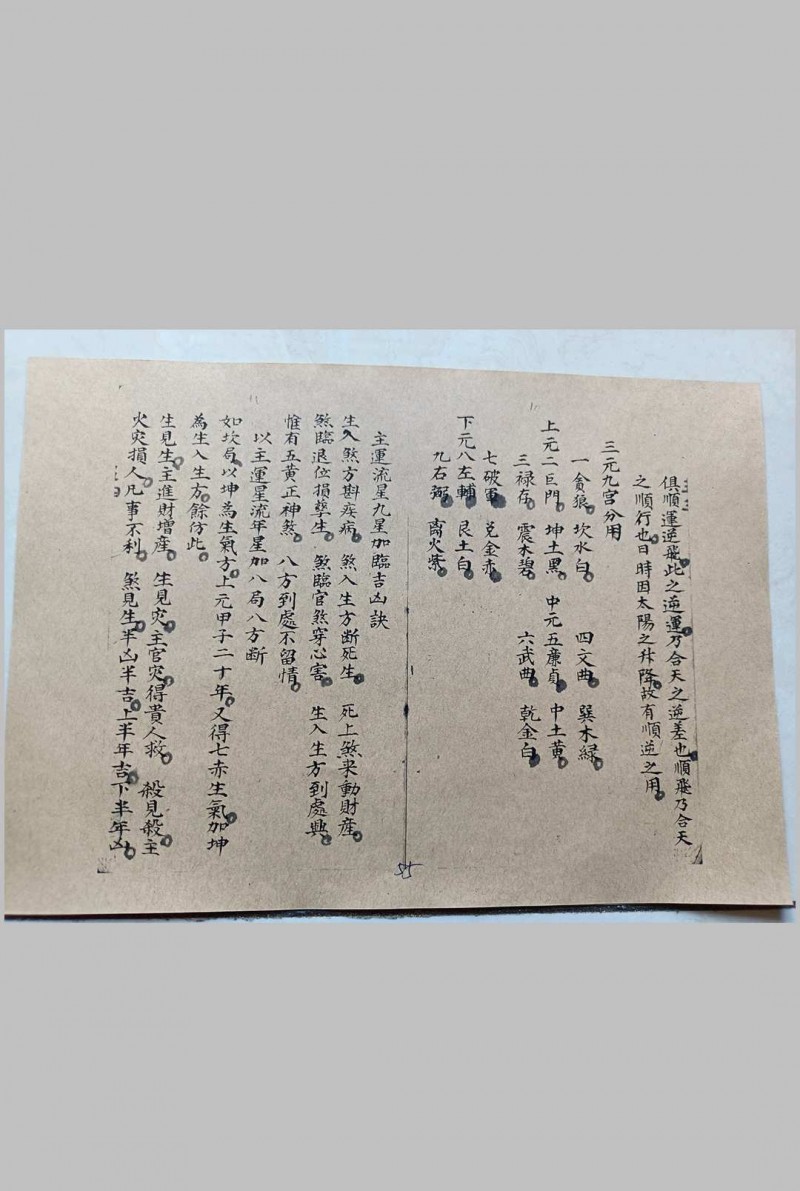 俱順運逆飛此之逆運乃合天之逆差也順飛乃合天
之順行也日時因太陽之升降故有順逆之用
三元九宮分用
一貪狼 坎水白 四文曲 巽木緑
上元二巨門 坤土黑 中元五廉貞 中土黄
三禄存 震木碧 六武曲 乾金白
七破軍 兑金赤
下元八左輔 艮土白
九右弼 离火紫
主運流星九星加臨吉凶訣
生入煞方斟疾病 煞入生方断死生 死上煞来動財産
煞臨退位損孳生 煞臨官煞穿心害 生入生方到處興
惟有五黄正神煞 八方到處不留情
以主運星流年星加八局八方断
如坎局以坤為生氣方上元甲子二十年又得七赤生氣加坤
為生入生方餘仿此
生見生主進財增産 生見灾主官灾得貴人救 殺見殺主
火灾損人凡事不利 煞見生半凶半吉上半年吉下半年凶
55